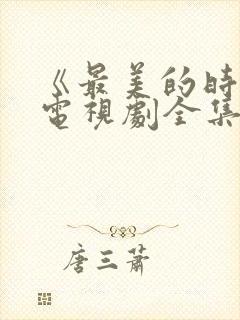 《最美的時
電視劇全集
唐三蕭